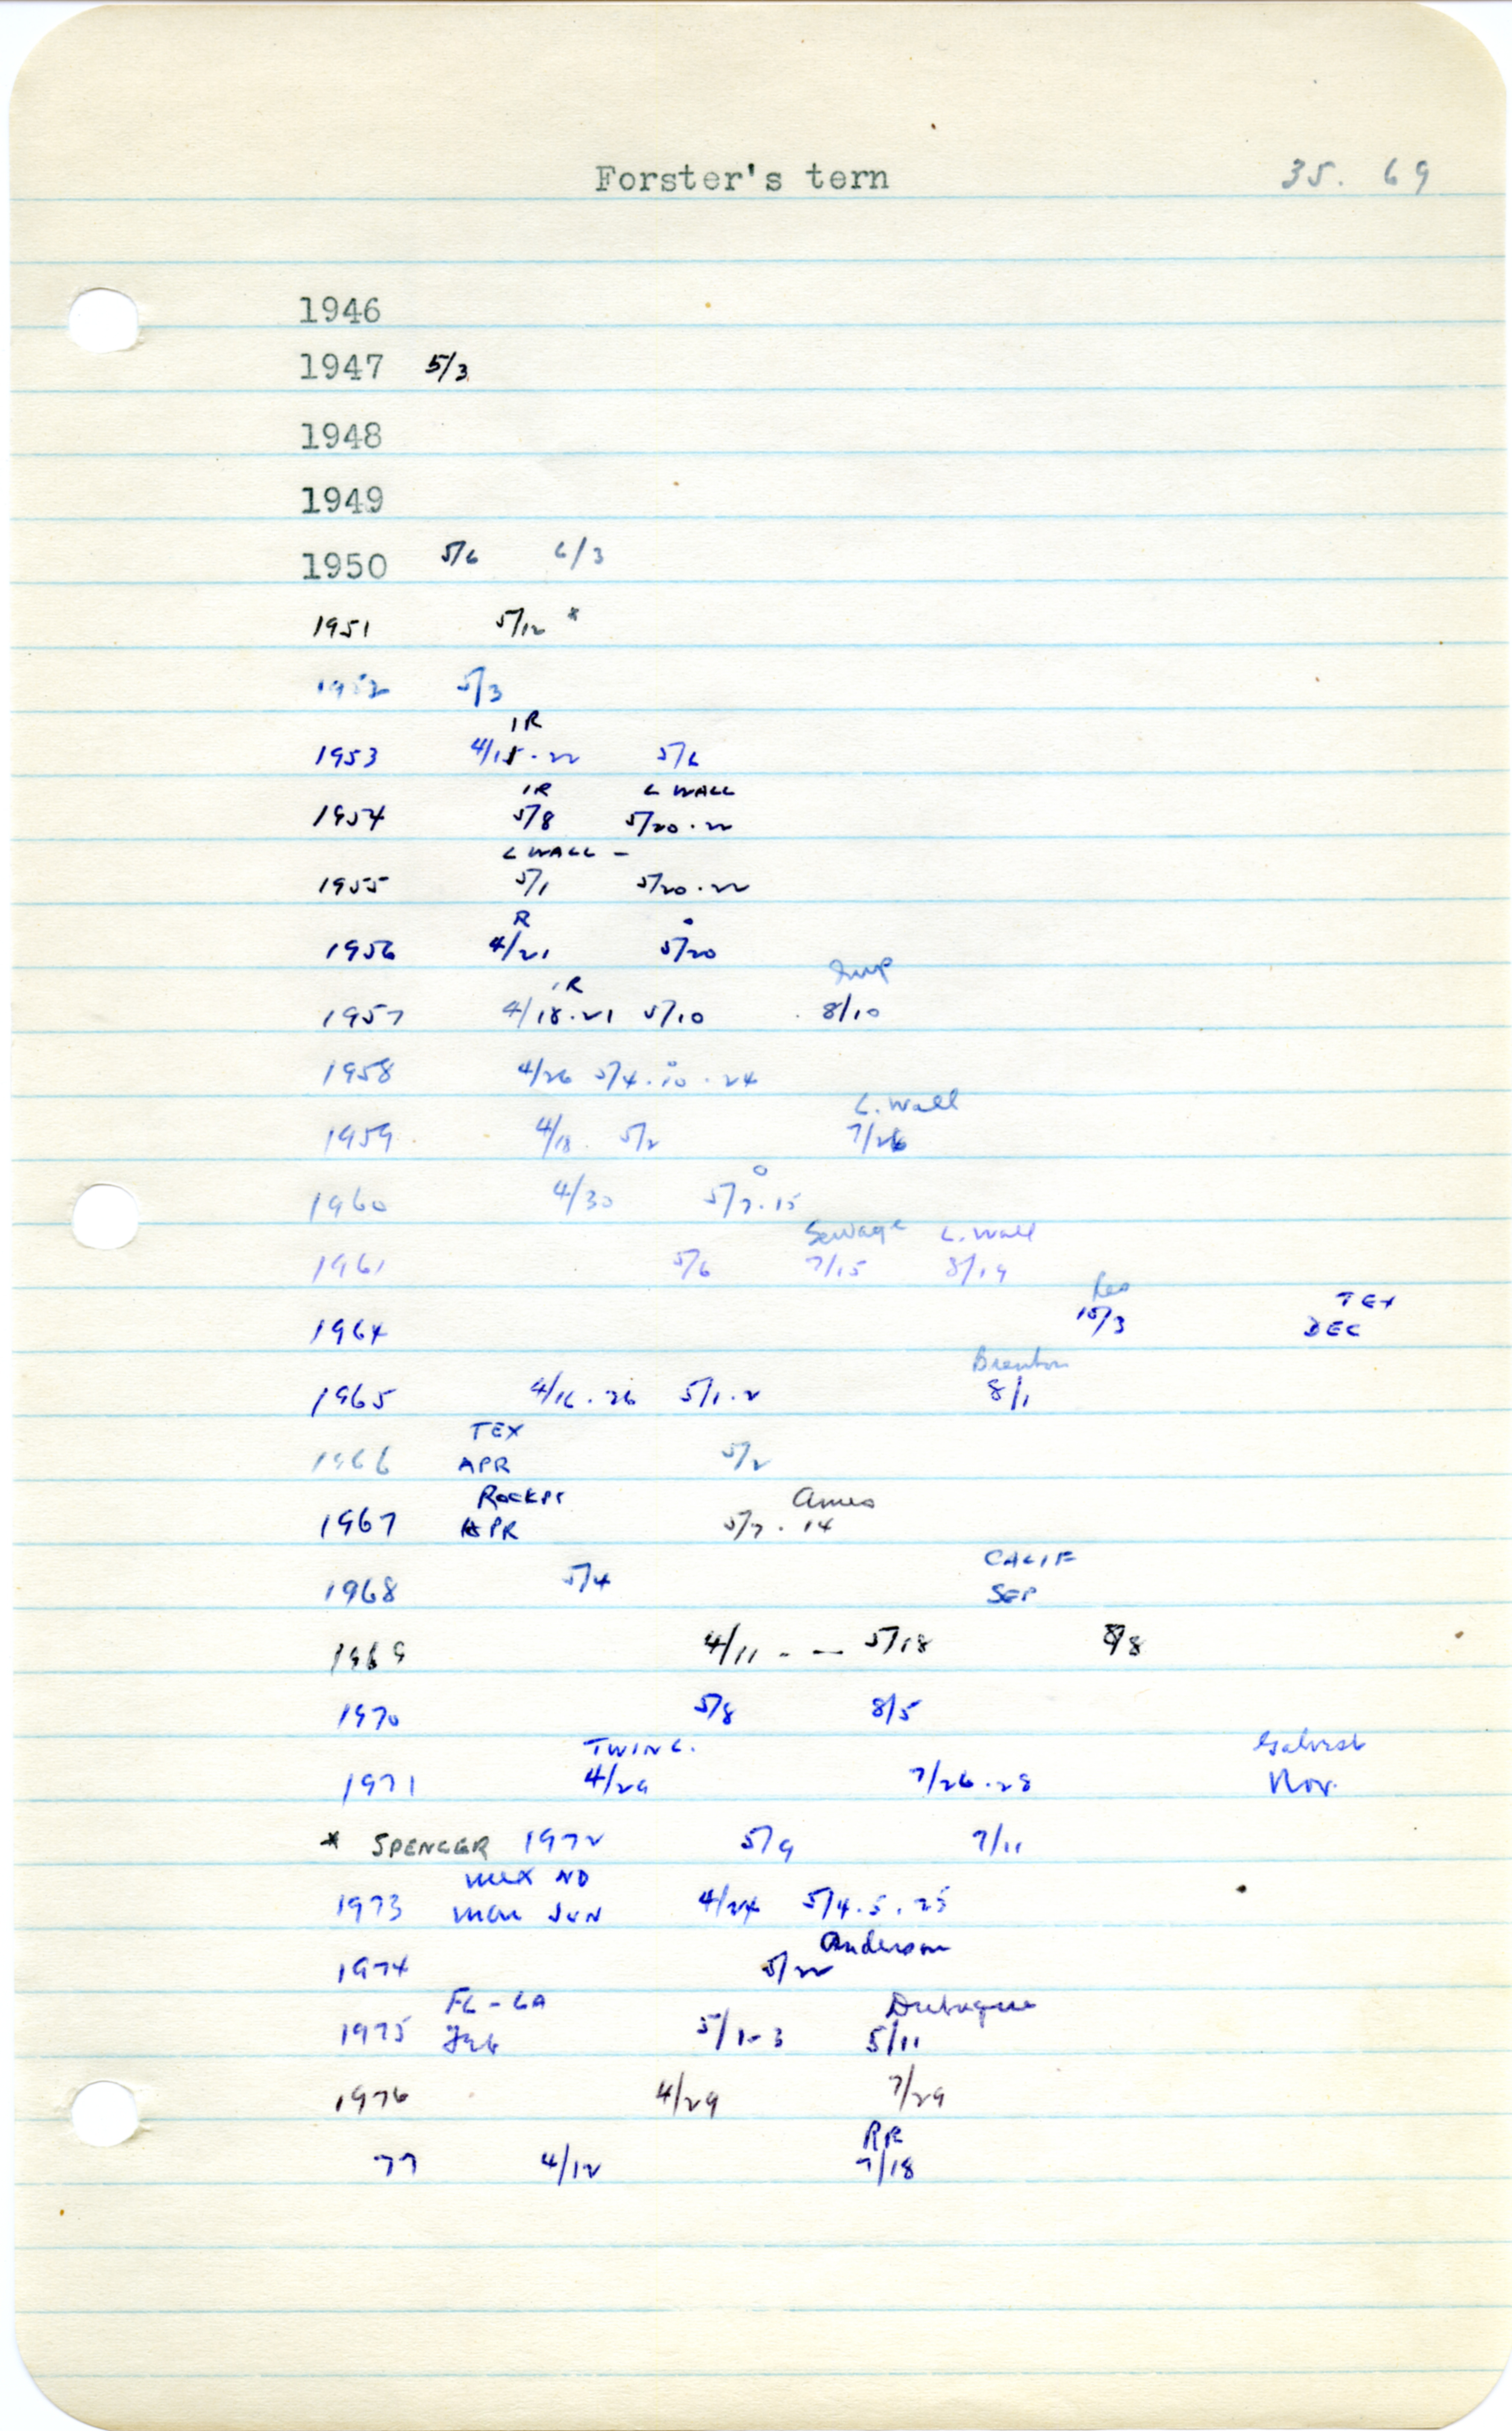 Forster's tern 35. 69
1946
1947 5/3
1948
1949
1950 5/6 6/3
1951 5/12 *
1952 5/3
IR
1953 4/15.22 5/6
IR L WALL
1954 5/8 5/20.22
L WALL -
1955 5/1 5/20.22
R
1956 4/21 5/20
IR
1957 4/18.21 5/10 8/10
1958 4/26 5/4.10.24
L. Wall
1959 4/18. 5/2 7/26
1960 4/30 5/7.15
Sewage L. Wall
1961 5/6 7/15 8/19
Res TEX
1964 10/3 DEC
Brenton
1965 4/16.26 5/1.2 8/1
TEX
1966 APR 5/2
Rockpt Ames
1967 APR 5/7.14
CALIF
1968 5/4 SEP
1969 4/11 - - 5/18 8/8
1970 5/8 8/5
TWIN L.
1971 4/29 7/26.28 Nov.
* SPENCER 1972 5/9 7/11
Mex ND
1973 Mar JUN 4/24 5/4.5.25
Anderson
1974 5/22
FL-LA Dubuque
1975 Feb 5/1-3 5/11
1976 4/29 7/29
RR
77 4/12 7/18